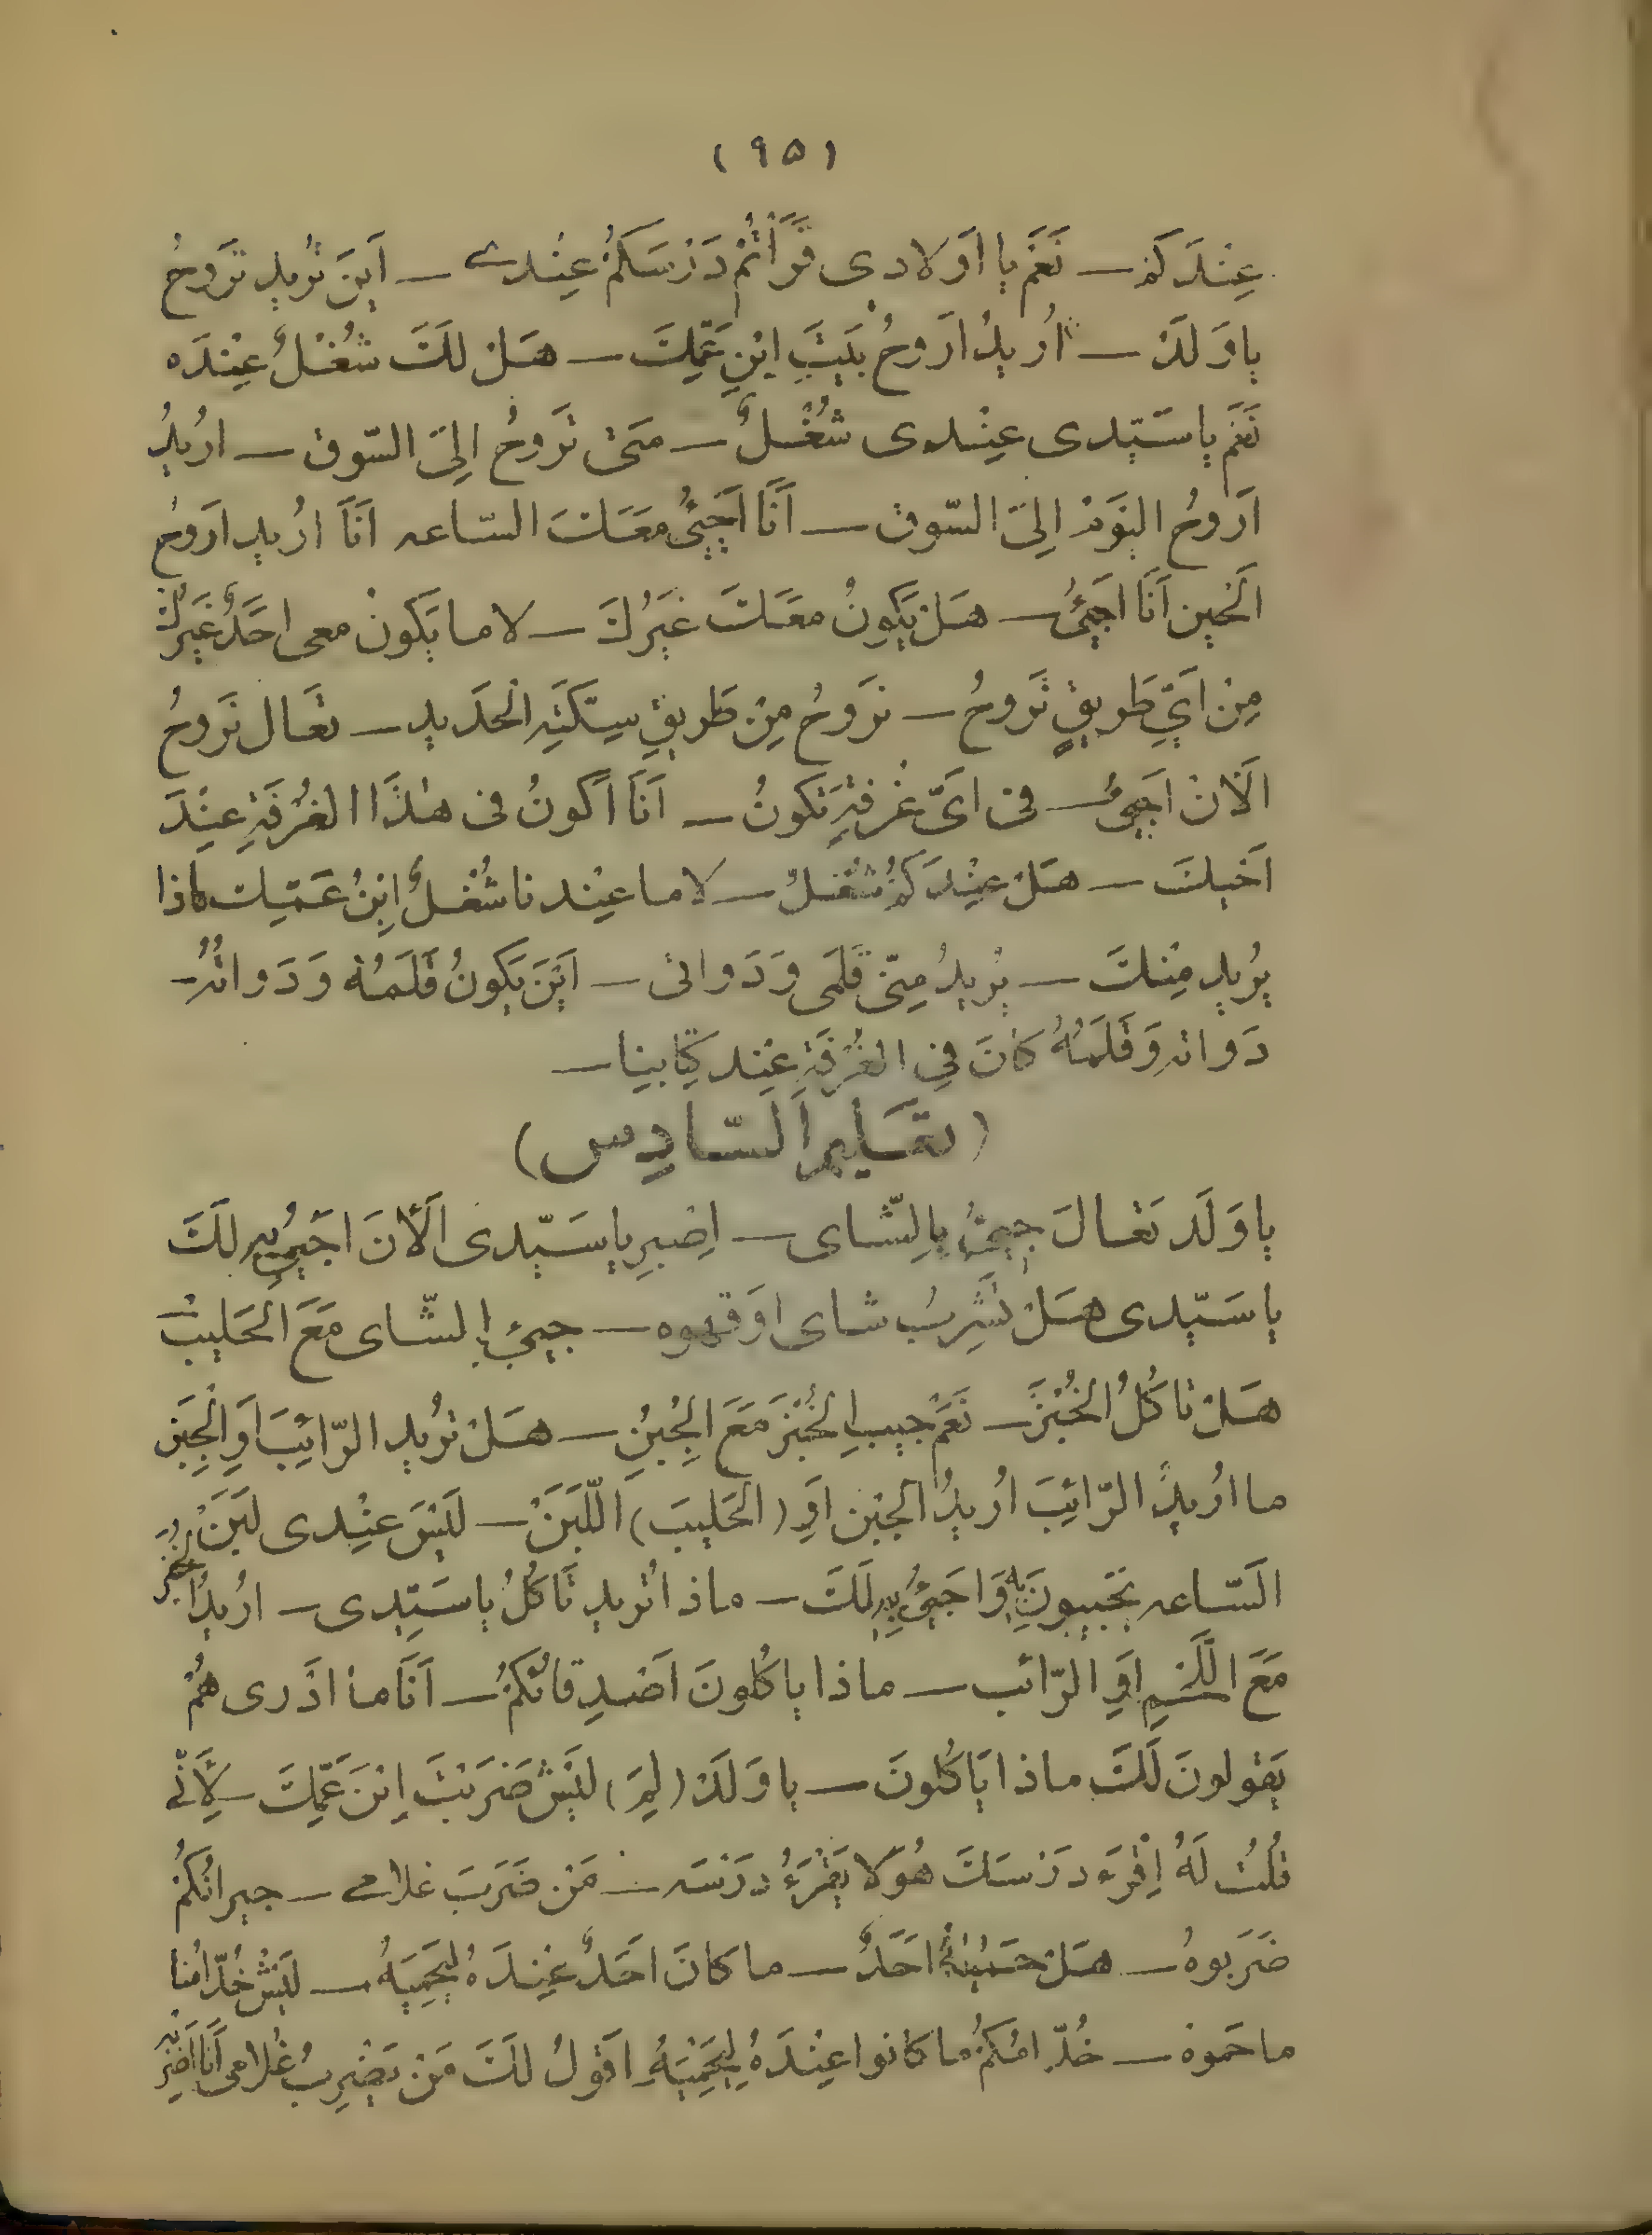 (٩٥)
عِنْدَكُمْ — نَعَمْ يا اَوْلادى قَرَأتُمْ دَرْسَكُمْ عِنْدى — اَيْنَ تُريد تَروحُ
يا وَلَدْ — اُريدُ اَروحُ بَيْتَ ابْنِ عَمِّكَ — هَلْ لَكَ شُغْلٌ عِنْدَه
نَعَم يا سَيّدى عِنْدى شُغْلٌ — مَتى تَروحُ اِلىَ السّوق — اُريدُ
اَروحُ اليَوْمَ اِلىَ السّوق — اَنَا اَجِيئُ مَعَكَ السّاعه اَنَا اُريد اَروحُ
اَلْحين اَنَا اَجيئُ — هَلْ يَكونُ مَعَكَ غَيْرُكَ — لا ما يَكونْ معى اَحَدٌ غَيْرُكَ
مِنْ اَيِّ طَريقٍ نَروحُ — نَروحُ مِنْ طَريقِ سِكَّتِهِ الْحَديد — تَعَال نَروحُ
اَلْان اَجيئُ — فى اَىِّ غُرْفَةٍ تَكونُ — اَنَا اَكونُ فى هٰذَا الغُرْفَةِ عِنْدَ
اَخيكَ — هَلْ عِنْدَكُمْ شُغْلٌ — لا ما عِنْدنا شُغْلٌ اِبْنُ عَمّك ماذا
يُريد مِنْكَ — يُريدُ مِنّى قَلَمى وَ دَواتى — اَيْنَ يَكونُ قَلَمُهُ وَ دَواتُهُ —
دَواتهِ وَ قَلَمُهُ كانَ فِى الغُرْفَةِ عِنْد كِتابِنا —
(تعَليم اَلسّادِس)
يا وَلَد تَعالَ جيئُ بِالشّاى — اِصْبِر يا سَيّدى اَلْأنَ اَجيئُ بِهِ لَكَ
يا سَيّدى هَلْ تَشْرِبُ شاى اَو قهوه — جيئ بالشّاى مَعَ الحَليبْ
هَلْ تَاكُلُ الخُبْزَ — نَعَمْ جيب الخُبْزَ مَعَ الجُبْنِ — هَلْ تُريد الرّائِبَ اَوِ الْجِبَنِ
ما اُريدُ الرّائِبَ اُريدُ الجبْن اَوِ (الحَليبَ) اَللَّبَنْ — لَيْسَ عِنْدى لَبَنْ
السّاعه يجيبونَ بِهِ وَ اَجيئُ بِهِ لَكَ — ماذا تُريد تَاكُلُ يا سَيّدى — اُريدُ الخُبْزَ
مَعَ اللَّحْمِ اَوِ الرّائب — ماذا ياكُلونَ اَصْدِقائكُمْ — اَنَا ما اَدْرى هُمْ
يَقولونَ لَكَ ماذا يَاكُلونَ — يا وَلَدْ (لِمَ) لَيْشْ ضَرَبْتَ اِبْنَ عَمِّكَ — لِأَنّى
قُلْتُ لَهُ اِقْرَءْ دَرْسَكَ هُوَ لا يَقْرَءُ دَرْسَه — مَنْ ضَرَبَ غلامى — جيرانُكُمْ
ضَرَبوهُ — هَلْ حَمَيْتَهُ اَحَدٌ — ما كانَ اَحَدٌ عِنْدَهُ لِيَحْمِيَهُ — لَيْشْ خُدّامُنا
ما حَموهْ — خُدّامُكُمْ ما كانوا عِنْدَهُ لِيَحْمِيَهُ اَقولُ لَكَ مَنْ يَضْرِبُ غُلامى اَنَا اَضْرِبهُ